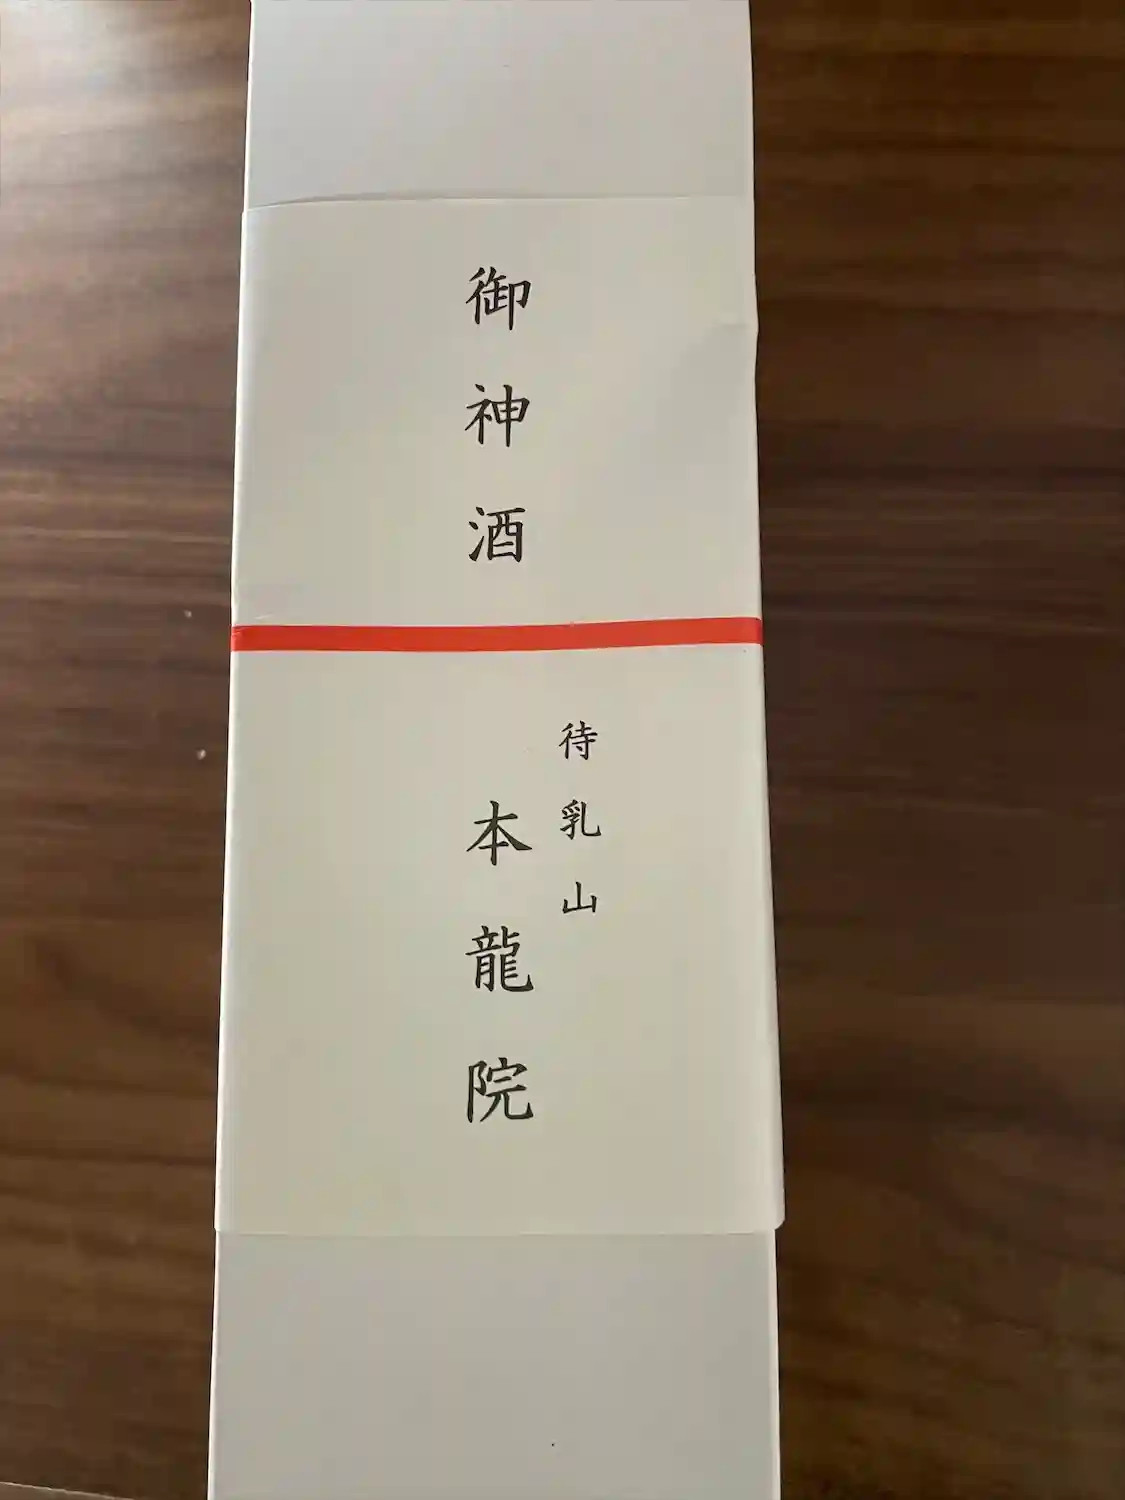 御神酒
待乳山
本龍院